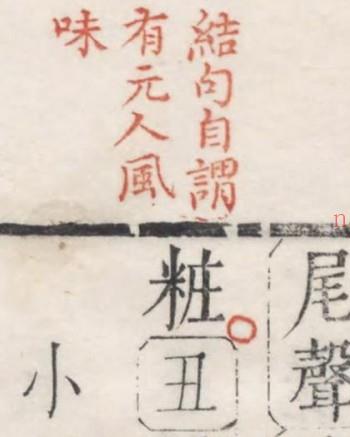 結句自謂
有元人風
味
尾聲
粧丑
小
n